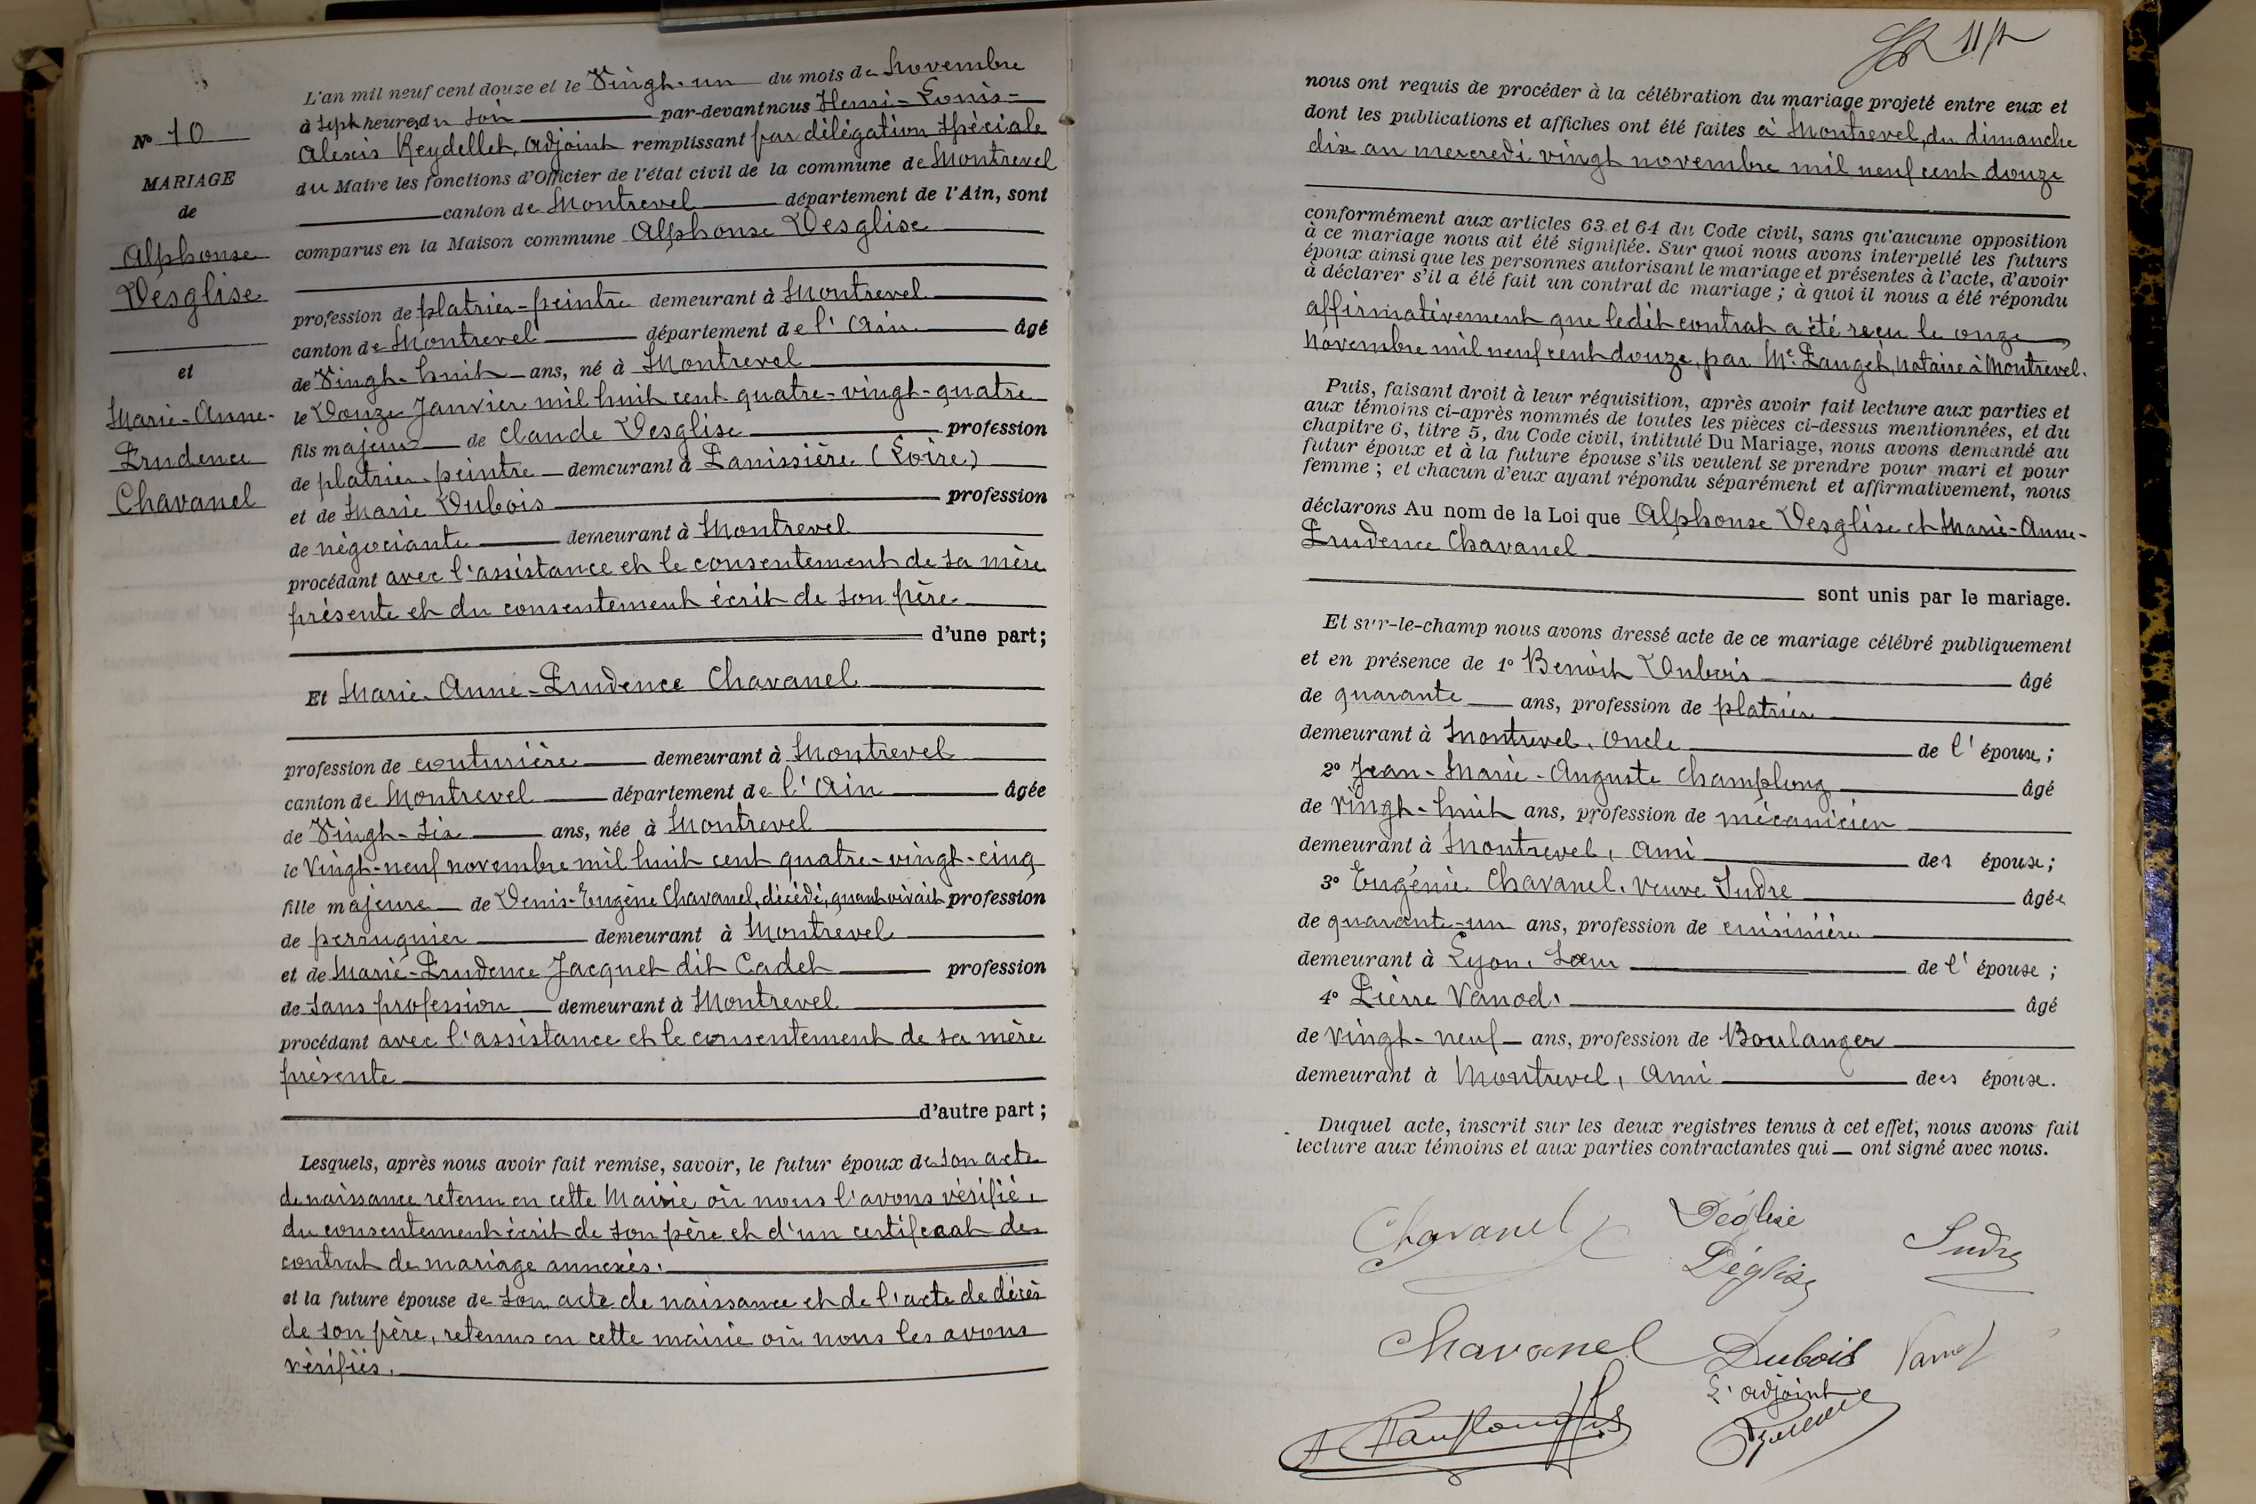 N° 10
MARIAGE
de
Alphonse
Desglise
et
Marie-Anne-
Prudence
Chavanel
L'an mil neuf cent douze et le Vingt-un du mois de Novembre
à Sept heures du soir par-devant nous Henri-Louis-
Alexis Reydellet, adjoint remplissant par délégation spéciale
du Maire les fonctions d'Officier de l'état civil de la commune de Montrevel
canton de Montrevel département de l'Ain, sont
comparus en la Maison commune Alphonse Desglise
profession de platrier-peintre demeurant à Montrevel
canton de Montrevel département de l'Ain âgé
de Vingt-huit ans, né à Montrevel
le Douze Janvier mil huit cent quatre-vingt-quatre
fils majeur de Claude Desglise profession
de platrier-peintre demeurant à Panissière (Loire)
et de Marie Dubois profession
de négociante demeurant à Montrevel
procédant avec l'assistance et le consentement de sa mère
présente et du consentement écrit de son père
d'une part;
Et Marie-Anne-Prudence Chavanel
profession de couturière demeurant à Montrevel
canton de Montrevel département de l'Ain âgée
de Vingt-six ans, née à Montrevel
le Vingt-neuf novembre mil huit cent quatre-vingt-cinq
fille majeure de Denis-Eugène Chavanel, décédé, quand vivait profession
de perruquier demeurant à Montrevel
et de Marie-Prudence Jacquet dit Cadet profession
de sans profession demeurant à Montrevel
procédant avec l'assistance et le consentement de sa mère
présente
d'autre part;
Lesquels, après nous avoir fait remise, savoir, le futur époux de son acte
de naissance retenu en cette Mairie où nous l'avons vérifié,
du consentement écrit de son père et d'un certificaat de
contrat de mariage annexés.
et la future épouse de son acte de naissance et de l'acte de décès
de son père, retenus en cette mairie où nous les avons
vérifiés.
11
nous ont requis de procéder à la célébration du mariage projeté entre eux et
dont les publications et affiches ont été faites à Montrevel, du dimanche
dix au mercredi vingt novembre mil neuf cent douze
conformément aux articles 63 et 64 du Code civil, sans qu'aucune opposition
à ce mariage nous ait été signifiée. Sur quoi nous avons interpellé les futurs
époux ainsi que les personnes autorisant le mariage et présentes à l'acte, d'avoir
à déclarer s'il a été fait un contrat de mariage; à quoi il nous a été répondu
affirmativement que ledit contrat a été reçu le onze
Novembre mil neuf cent douze, par Me Panget, Notaire à Montrevel.
Puis, faisant droit à leur réquisition, après avoir fait lecture aux parties et
aux témoins ci-après nommés de toutes les pièces ci-dessus mentionnées, et du
chapitre 6, titre 5, du Code civil, intitulé Du Mariage, nous avons demandé au
futur époux et à la future épouse s'ils veulent se prendre pour mari et pour
femme; et chacun d'eux ayant répondu séparément et affirmativement, nous
déclarons Au nom de la Loi que Alphonse Desglise et Marie-Anne-
Prudence Chavanel
sont unis par le mariage.
Et sur-le-champ nous avons dressé acte de ce mariage célébré publiquement
et en présence de 1° Benoit Dubois âgé
de quarante ans, profession de platrier
demeurant à Montrevel, oncle de l'épouse;
2° Jean-Marie-Auguste Champlong âgé
de vingt-huit ans, profession de mécanicien
demeurant à Montrevel, ami des épouse;
3° Eugénie Chavanel, veuve Sudre âgée
de quarante-un ans, profession de cuisinière
demeurant à Lyon, Sœur de l'épouse;
4° Pierre Varnod, âgé
de vingt-neuf ans, profession de Boulanger
demeurant à Montrevel, ami des épouse.
Duquel acte, inscrit sur les deux registres tenus à cet effet, nous avons fait
lecture aux témoins et aux parties contractantes qui ont signé avec nous.
Chavanel Déglise Sudre
Déglise
Chavanel Dubois
L'adjoint